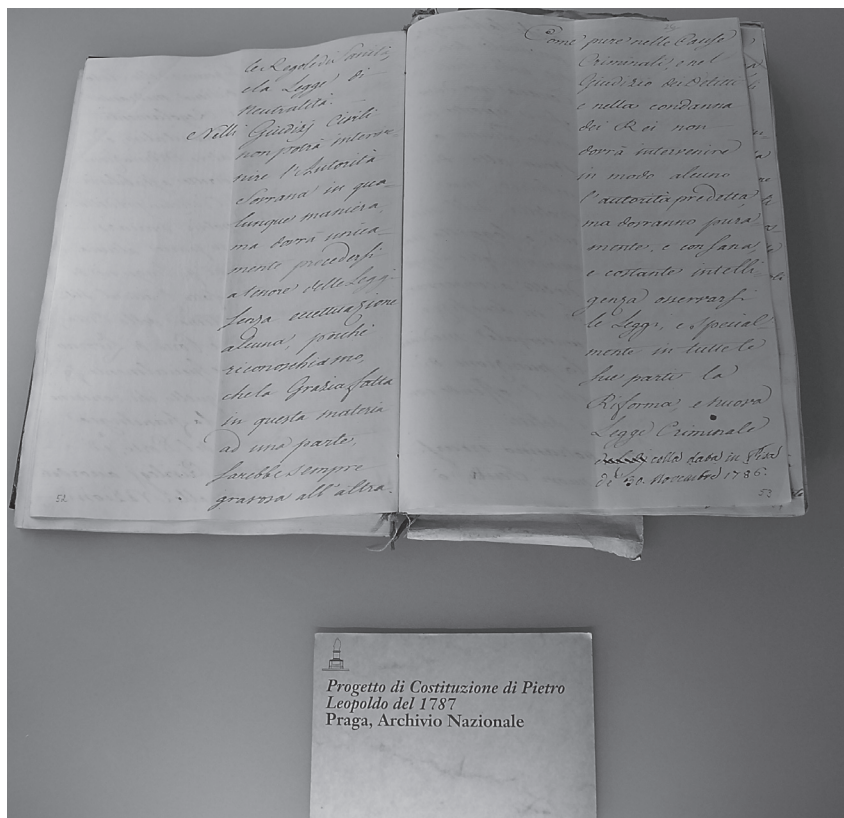 le Regole di Sanità,
e la Legge di
Neutralità.
Nelli Giudizj Civili
non potrà interve¬
nire l'Autorità
Sovrana in qua¬
lunque maniera,
ma dovrà unica¬
mente procedersi
a tenore delle Leggi
senza eccettuazione
alcuna, poichè
riconoschiamo,
che la Grazia fatta
in questa materia
ad una parte,
sarebbe sempre
gravosa all'altra.
52
Come pure nelle Cause
Criminali, e nel
Giudizio dei Delitti
e nella condanna
dei Rei non
dovrà intervenire
in modo alcuno
l'autorità predetta,
ma dovranno pura¬
mente, e con sana,
e costante intelli¬
genza osservarsi
le Leggi, e special¬
mente in tutte le
sue parti la
Riforma, e nuova
Legge Criminale
colla data in
de' 30. Novembre 1786.
53
Progetto di Costituzione di Pietro
Leopoldo del 1787
Praga, Archivio Nazionale